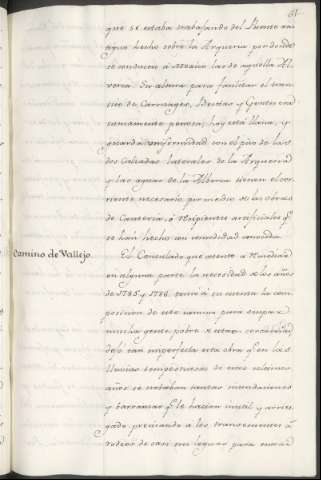 61.
que se estaba trabajando del Puente an-
tiguo hecho sobre la Arqueria por donde
se conducen á otro lado aquella Al-
verca. Su altura para facilitar el tran-
sito de Carruages, Bestias y Gentes era
sumamente penosa; hoy está llana, y
guarda conformidad con el piso de las
dos Calzadas laterales de la Arqueria
y las aguas de la Alberca tienen el cor-
riente necesario por medio de las obras
de Canteria, ó Recipientes artificiales q.e
se han hecho con comodidad
Camino de Vallejo.
El Consulado que atento á remediar
en alguna parte la necesidad de los años
de 1785 y 1786 tomó á su cuenta la com-
posicion de este camino para ocupar
mucha gente pobre
dejó tan imperfecta esta obra q.e en las
lluvias tempestuosas de estos ultimos
años se notaban tantas inundaciones
y barrancas q.e le hacian inutil y arries-
gado, precisando á los transeuntes á
rodeos de casi una legua para